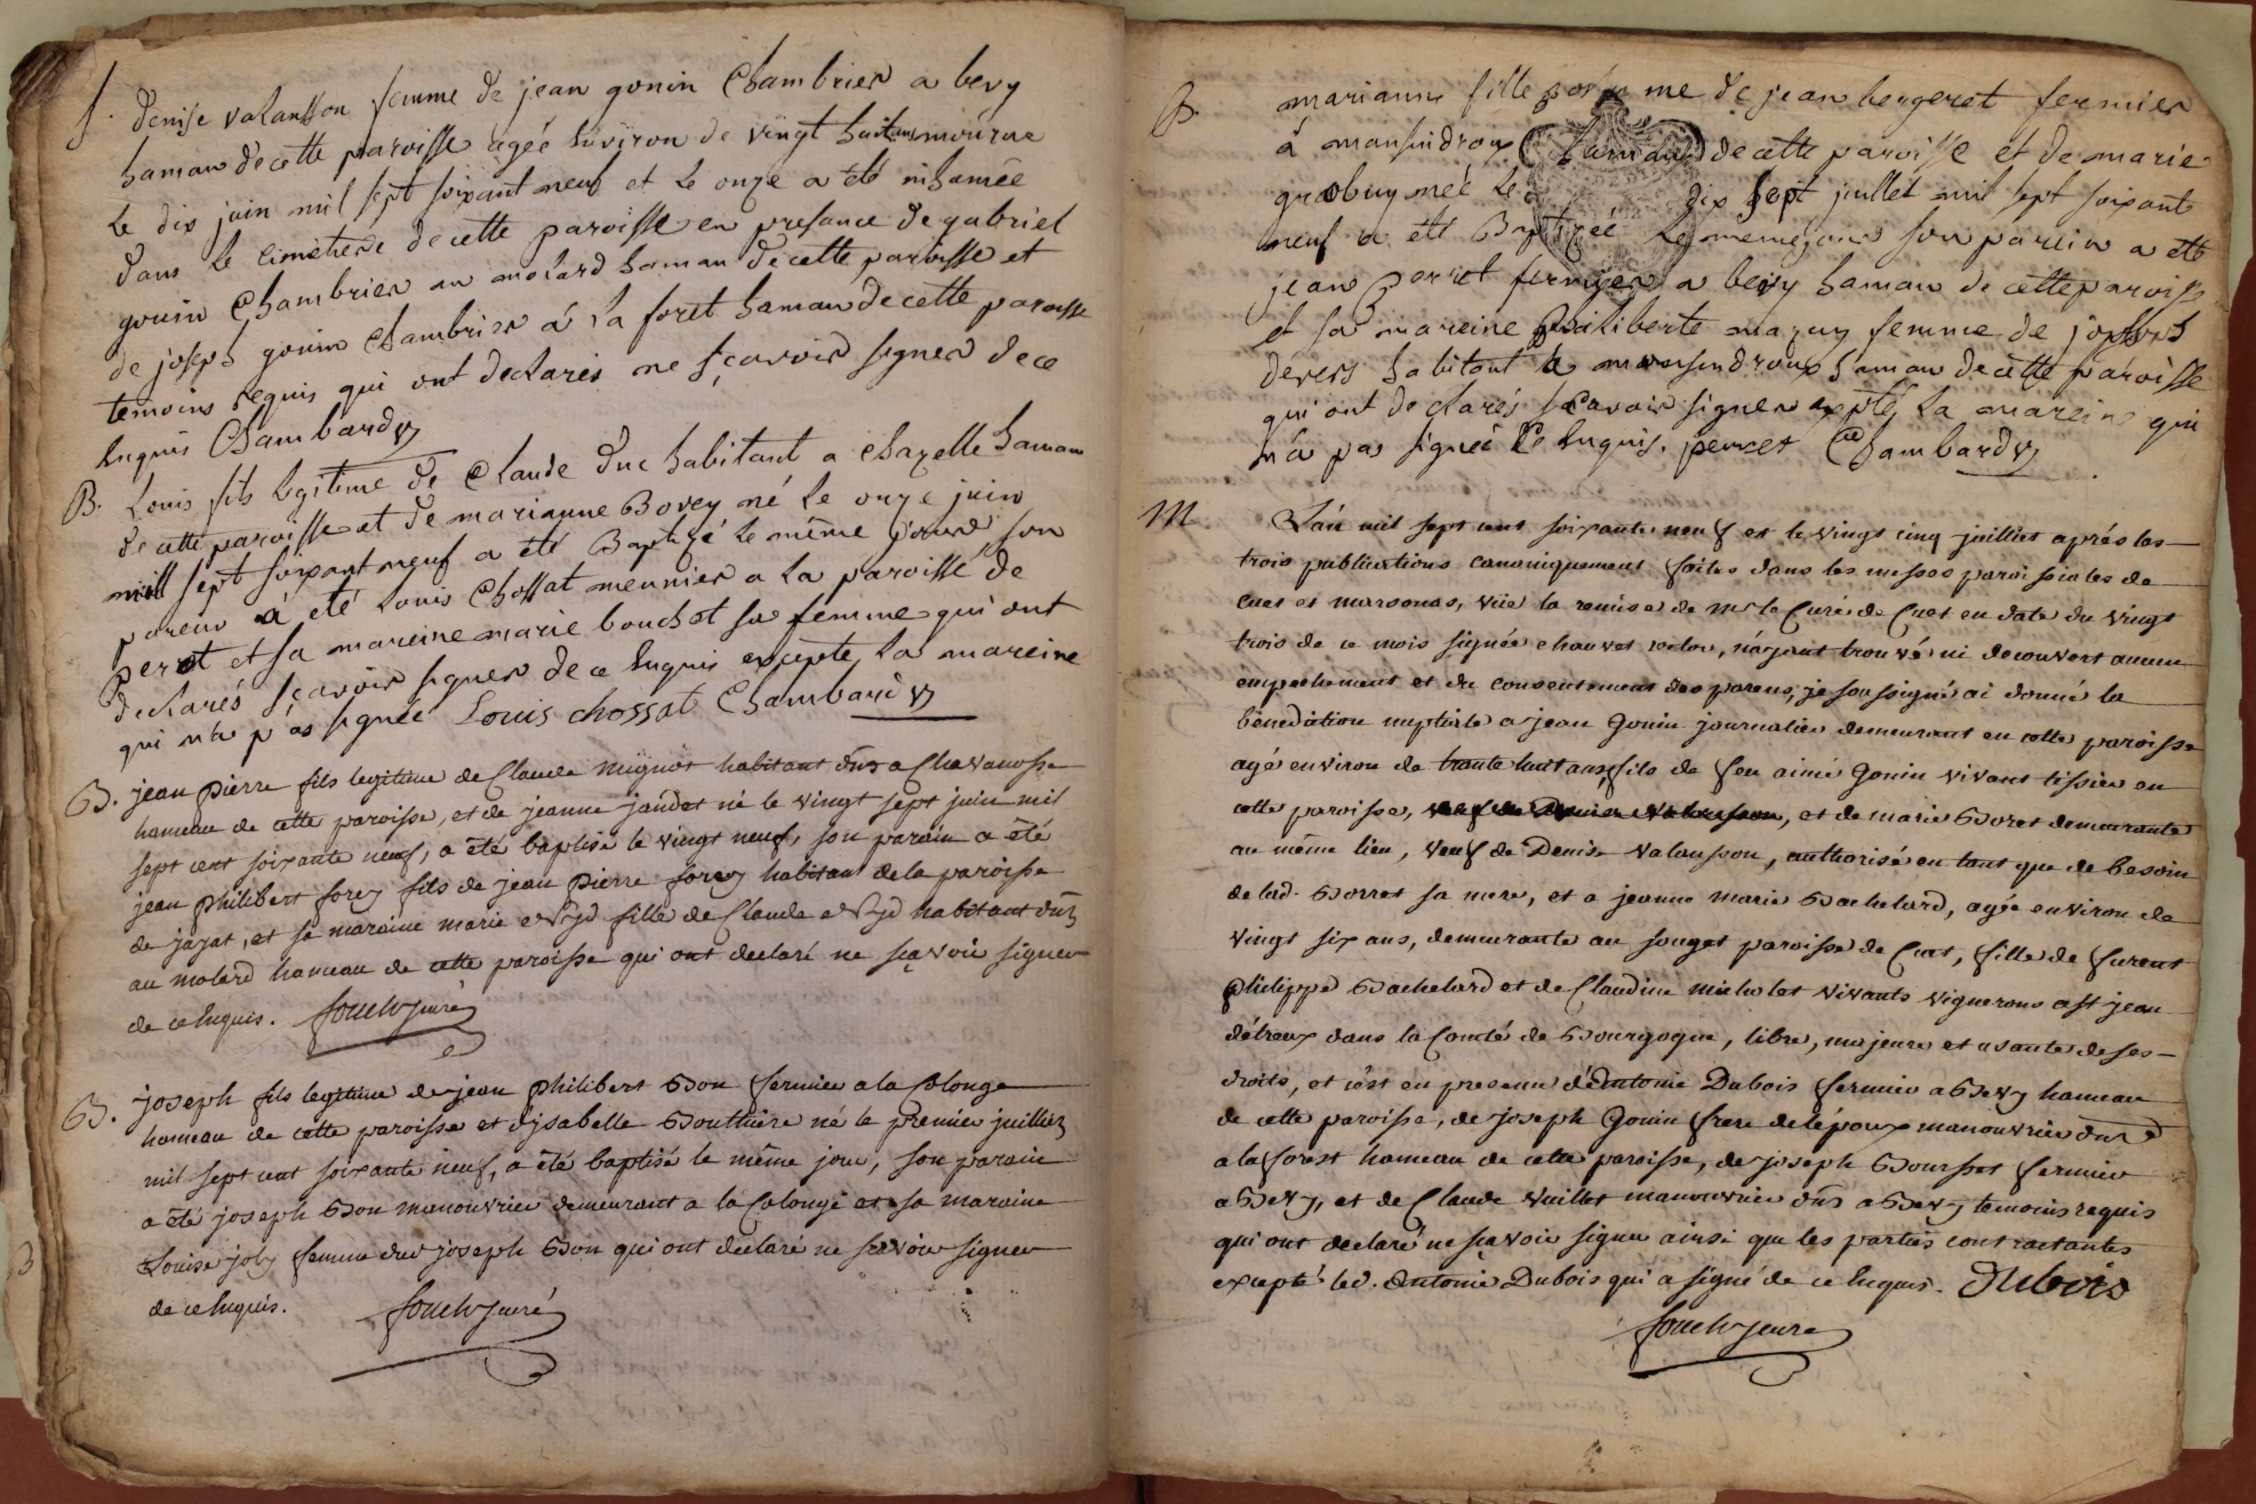 f. Denise valansson femme de jean gonin Chambrier a bevy
hamau de cette paroisse agée environ de vingt huit ans mourue
le dix juin mil sept soixant neuf et le onze a été inhamée
dans le cimetiere de cette paroisse en presance de gabriel
gonin Chambrier au molard hamau de cette paroisse et
de joseph gonin Chambrier á la foret hamau de cette paroisse
temoins requis qui ont declarés ne sçavoir signer de ce
enquis Chambard
B. Louis fils legitime de Claude Duc habitant a Chazelle hamau
de cette paroisse et de marianne Bovey né le onze juin
mill sept soixant neuf a été Baptizé le même jour son
parein á eté Louis Chossat meunier a la paroisse de
perot et sa mareine marie bouchot sa femme qui ont
declarés sçavoir signer de ce enquis excepte la mareine
qui n'a pas signée Louis chossat Chambard
B. jean pierre fils legitime de Claude mignot habitant a Chavanosse
hameau de cette paroisse, et de jeanne jandet né le vingt sept juin mil
sept cent soixante neuf, a été baptisé le vingt neuf, son parain a été
jean philibert forey fils de jean pierre forey habitant de la paroisse
de jayat, et sa maraine marie fille de Claude habitant
au molard hameau de cette paroisse qui ont declaré ne sçavoir signer
de ce enquis.
B. joseph fils legitime de jean philibert Bon fermier a la Colonge
hameau de cette paroisse et d'ysabelle Bouthiere né le premier juillier
mil sept cent soixante neuf, a été baptisé le même jour, son parain
a été joseph Bon manouvrier demeurant a la Colonge et sa maraine
Louise joly femme dud joseph Bon qui ont declaré ne sçavoir signer
de ce enquis.
B. marianne fille de jean bergeret fermier
á mansindroux hamau de cette paroisse et de marie
grobuy née le dix sept juillet mil sept soixant
neuf a été Baptizée le meme jour son parein a été
jean perret fermier a bevy hamau de cette paroisse
et sa mareine philiberte mazuy femme de joseph
devers habitant a mansindroux hamau de cette paroisse
qui ont declarés sçavoir signer expté la mareine qui
n'a pas signée de enquis. perret Chambard
M L'an mil sept cent soixante neuf et le vingt cinq juilliet aprés les
trois publications canoniquement faites dans les messes paroissiales de
cuet et marsonas, vüe la remise de Mr le Curé de Cuet en date du vingt
trois de ce mois signée chauvet, n'ayant trouvé ni decouvert aucun
empechement et du consentement des parens, je soussigné ai donné la
bénediction nuptiale a jean Gonin journalier demeurant en cette paroisse
agé environ de trante huit ans, fils de feu aimé Gonin vivant tissier en
cette paroisse, et de marie Boret demeurante
au même lieu, veuf de Denise valansson, authorisé en tant que de besoin
de lad. Borret sa mere, et a jeanne marie Bachelard, agée environ de
vingt six ans, demeurante au souget paroisse de Cuet, fille de furent
philippe Bachelard et de Claudine michelet vivants vignerons a St jean
d'étreux dans la Comté de Bourgogne, libre, majeure et usante de ses
droits, et c'est en presence d'Antoine Dubois fermier a Bevy hameau
de cette paroisse, de joseph Gonin frere de l'époux manouvrier
a la forest hameau de cette paroisse, de joseph Boursset fermier
a Bevy, et de Claude vuillet manouvrier a Bevy temoins requis
qui ont declaré ne sçavoir signer ainsi que les parties contractantes
excepté led. Antoine Dubois qui a signé de ce enquis. Dubois